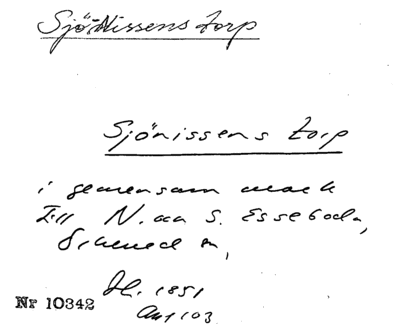 Sjö-Nissens torp
Sjönissens torp
i gemensam mark
till N. om S. Esseboda,
Örkened sn,
Hl. 1851
Nr 10342
103